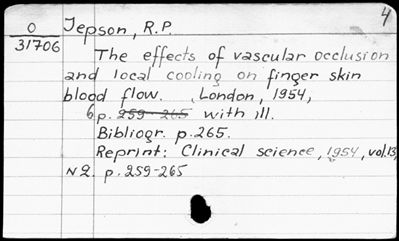 4
O Jepson, R.P.
31706
The effects of vascular occlusion
and local cooling on finger skin
blood flow. London, 1954,
6p. 259-265 with ill.
Bibliogr. p.265.
Reprint: Clinical science, 1954, vol.13,
N2. p.259-265